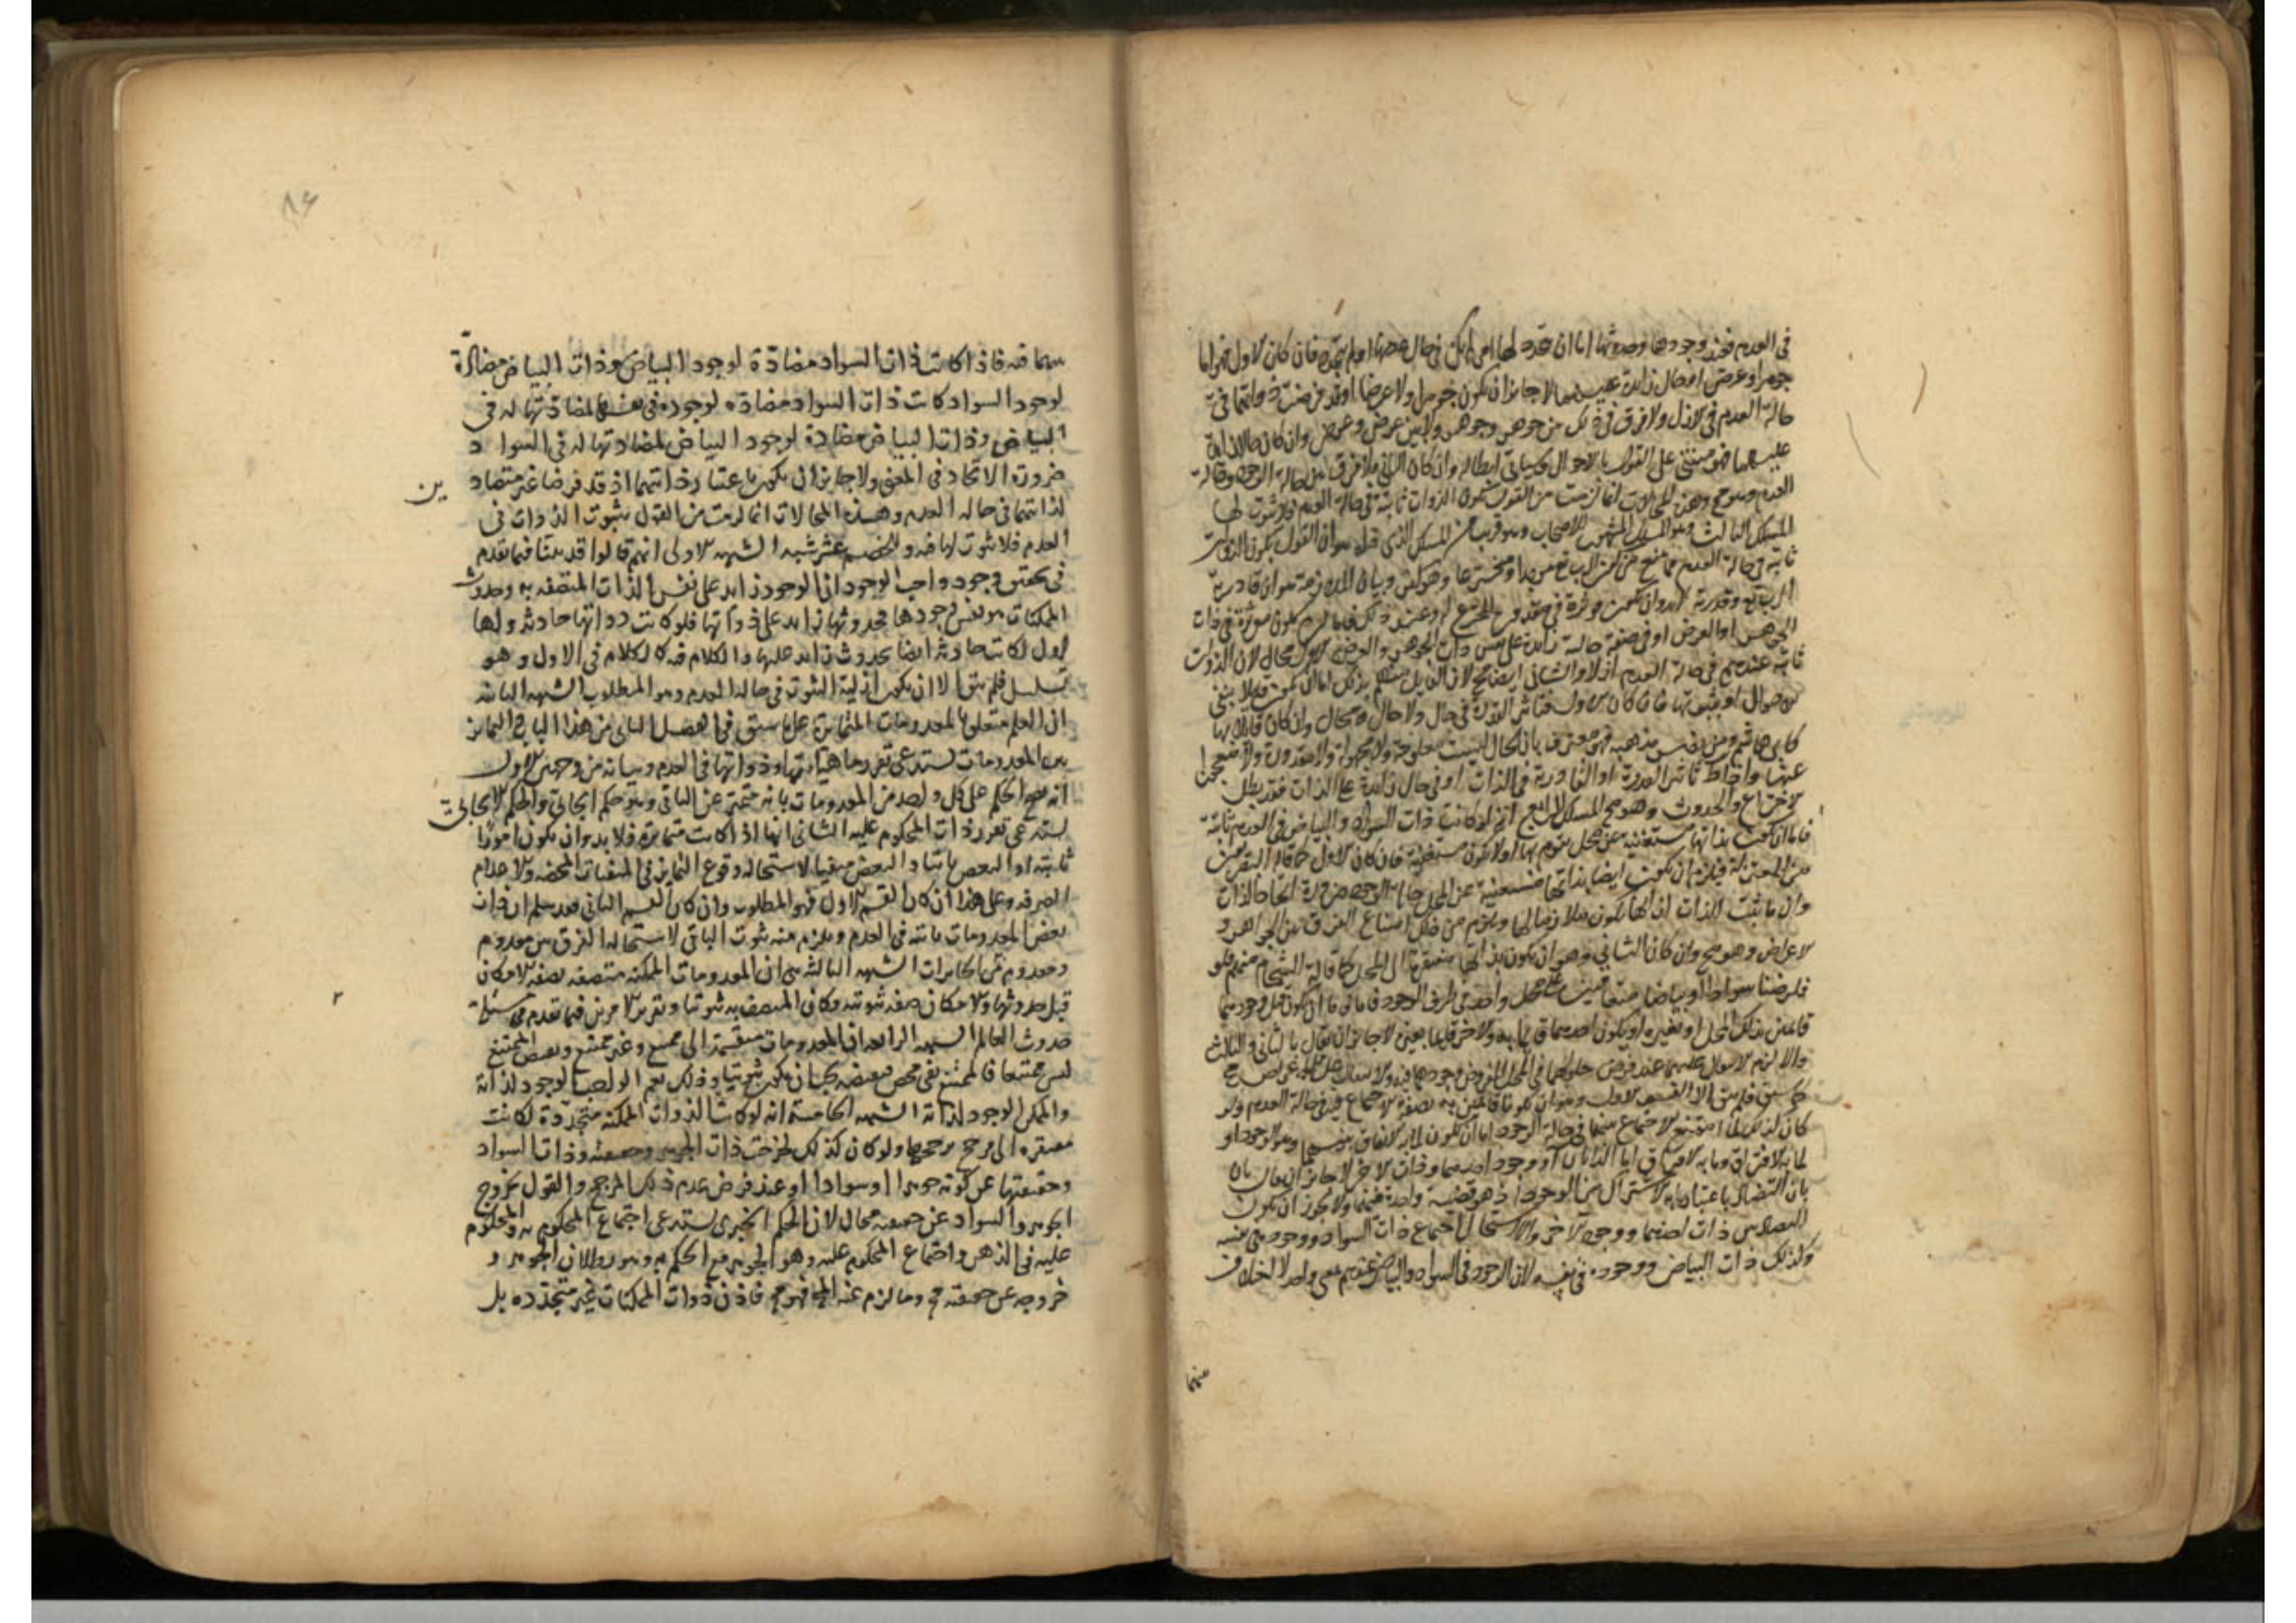 في العدم فعند وجودها وحدوثها اما ان تجدد لها امر لم يكن في حال عدمها او لم يتجدد فان كان الاول فهو اما
جوهر او عرض او حال زائدة عليهما لا جائز ان يكون جوهرا ولا عرضا اذ قد فرضت ذواتهما في
حالة العدم في الازل ولا فرق في ذلك بين جوهر وجوهر ولا بين عرض وعرض وان كان حالا زائدة
عليهما فهو مبني على القول بالاحوال وسياتي ابطاله وان كان الثاني فلا فرق بين حالة الوجود وحالة
العدم وهو مح وهذه المحالات انما لزمت من القول بكون الذوات ثابتة في حالة العدم فلا ثبوت لها
المسلك الثالث وهو المسلك المشهور للاصحاب وهو قريب من المسلك الذي قبله هو ان القول بكون الذوات
ثابتة في حالة العدم مما يمنع من كون الرب تع مبدا ومخترعا وهو كفر وبيان الملازمة هو ان قادرية
الرب تع وقدرته لا بد وان تكون مؤثرة في مقدور مخترع له وعند ذلك فاما ان يكون مؤثرة في ذات
الجوهر او العرض او في صفة حالية زائدة على نفس ذات الجوهر والعرض الاول محال لان الذوات
ثابتة عندهم في حالة العدم ازلا والثاني ايضا مح لان القايل منهم بذلك اما ان يكون قايلا بنفي
الاحوال او بثبوتها فان كان الاول فتاثير القدرة في حال ولا حال مح محال وان كان قايلا بها
كابي هاشم ومن نفس مذهبه فهو معترف بان الحال ليست معلومة ولا مجهولة ولا مقدورة ولا معجوزا
عنها واذا بطل تاثير القدرة او القادرية في الذات او في حال زائدة على الذات فقد بطل
الاختراع والحدوث وهو مح المسلك الرابع انه لو كانت ذات السواد والبياض في العدم ثابتة
فاما ان تكون بذاتها مستغنية عن محل يقوم بها او لا تكون مستغنية فان كان الاول كما قاله البصريون
من المعتزلة فيلزم ان تكون ايضا بذاتها مستغنية عن المحل حالة الوجود ضرورة اتحاد الذات
وان ما ثبت للذات لذاتها يكون ملازما لها ويلزم من ذلك امتناع الفرق بين الجواهر و
الاعراض وهو مح وان كان الثاني وهو ان يكون بذاتها مفتقرة الى المحل كما قاله الشحام منهم فلو
فرضنا سوادا وبياضا متعاقبين على محل واحد في طرف الوجود فاما ان يكون قبل وجودهما
قائمين بذلك المحل او بغيره او يكون احدهما قائما به والاخر قايما بغيره لا جائز ان يقال بالثاني والثالث
والا لزم الانتقال عليهما عند فرض حلولهما في المحل المفروض وجودهما فيه والانتقال على العرض مح
كما سبق فلم يبق الا القسم الاول وهو ان يكونا قائمين به بصفة الاجتماع في حالة العدم ولو
كان كذلك لما امتنع الاجتماع بينهما في حالة الوجود اما ان يكون لما به الاتفاق بينهما وهو الوجود او
لما به الافتراق وما به الافتراق اما الذاتان او وجود احدهما وذات الاخر لا جائز ان يقال بان
بان التضاد باعتبار ما به الاشتراك من الوجود اذ هو قضية واحدة فيهما ولا يجوز ان يكون
التضاد بين ذات احدهما ووجود الاخر والا لاستحال اجتماع ذات السواد ووجوده في نفسه
وكذلك ذات البياض ووجوده في نفسه لان الوجود في السواد والبياض عندهم بمعنى واحد لا اختلاف
منهما
٨٤
بينهما فيه فاذا كانت ذات السواد مضادة لوجود البياض وذات البياض مضادة
لوجود السواد كانت ذات السواد مضادة لوجوده في نفسها لمضادتها له في
البياض وذات البياض مضادة لوجود البياض لمضادتها له في السواد
ضرورة الاتحاد في المعنى ولا جايز ان يكون باعتبار ذاتيهما اذ قد فرضا غير متضاد
ين
لذاتيهما في حالة العدم وهذه المحالات انما لزمت من القول بثبوت الذوات في
العدم فلا ثبوت لها فيه وللخصم عشر شبه الشبهة الاولى انهم قالوا قد بينا فيما تقدم
في تحقيق وجود واجب الوجود ان الوجود زايد على نفس الذات المتصفة به وحدوث
الممكنات هو نفس وجودها فحدوثها زايد على ذواتها فلو كانت ذواتها حادثة ولها
اول لكانت حادثة ايضا بحدوث زايد عليها والكلام فيه كالكلام في الاول وهو
تسلسل فلم يبق الا ان يكون ازلية الثبوت في حالة العدم وهو المطلوب الشبهة الثانية
ان العلم متعلق بالمعدومات المتمايزة على ما سبق في الفصل الثاني من هذا الباب والتمايز
بين المعدومات يستدعي تقرر ماهياتها وذواتها في العدم وبيانه من وجهين الاول
انه يصح الحكم على كل واحد من المعدومات بانه متميز عن الباقي وهو حكم ايجابي والحكم الايجابي
يستدعي تقرر ذات المحكوم عليه الثاني انها اذا كانت متمايزة فلا بد وان يكون امورا
ثابتة او البعض ثابتا والبعض منفيا لاستحالة وقوع التمايز في المنفيات المحضة والاعدام
الصرفة وعلى هذا ان كان القسم الاول فهو المطلوب وان كان القسم الثاني فقد سلم ان ذات
بعض المعدومات ثابتة في العدم ويلزم منه ثبوت الباقي لاستحالة الفرق بين معدوم
ومعدوم من الممكنات الشبهة الثالثة هي ان المعدومات الممكنة متصفة بصفة الامكان
قبل حدوثها والامكان صفة ثبوتية فكان المتصف به ثبوتيا وتقرير الامرين فيما تقدم في مسئلة
٢
حدوث العالم الشبهة الرابعة ان المعدومات منقسمة الى ممتنع وغير ممتنع وبعض الممتنع
ليس ممتنعا فالممتنع نفي محض فنقيضه يجب ان يكون ثبوتيا وذلك يعم الواجب الوجود لذاته
والممكن الوجود لذاته الشبهة الخامسة انه لو كانت الذوات الممكنة متجددة لكانت
مفتقرة الى مرجح يرجحها ولو كان كذلك لخرجت ذات الجوهر وحقيقته وذات السواد
وحقيقتها عن كونه جوهرا او سوادا او عند فرض عدم ذلك المرجح والقول بخروج
الجوهر والسواد عن حقيقته محال لان الحكم الخبري يستدعي اجتماع المحكوم به والمحكوم
عليه في الذهن واجتماع المحكوم عليه وهو الجوهر مع الحكم به وهو بطلان الجوهر و
خروجه عن حقيقته مح وما لزم عنه المح فهو مح فاذن ذوات الممكنات غير متجددة بل